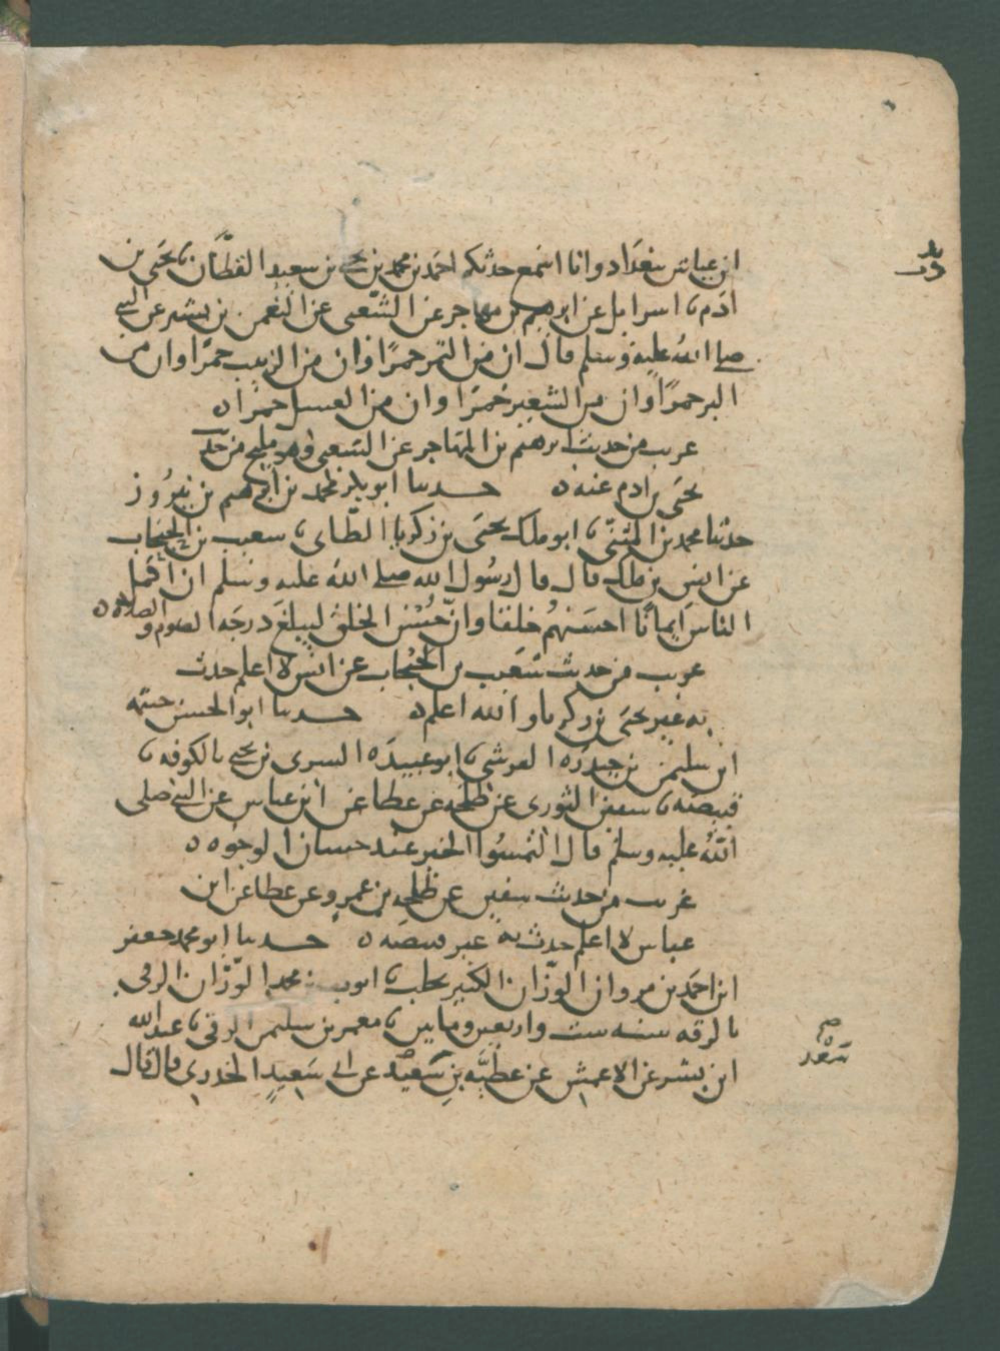 ابن عياش ببغداد وانا اسمع حدثكم احمد بن محمد بن يحيى بن سعيد القطان نا يحيى بن
ادم نا اسرايل عن ابرهيم بن مهاجر عن الشعبي عن النعمن بن بشير عن النبي
صلى الله عليه وسلم قال ان من التمر خمرًا وان من الزبيب خمرًا وان من
البر خمرًا وان من الشعير خمرًا وان من العسل خمرًا ه
غريب من حديث ابرهيم بن المهاجر عن الشعبي وهو مليح من حديث
يحيى بن ادم عنه ه حدثنا ابو بكر محمد بن ابرهيم بن نيروز
حدثنا محمد بن المثنى نا ابو ملك يحيى بن زكريا الطاي نا شعيب بن الحبحاب
عن انس بن ملك قال قال رسول الله صلى الله عليه وسلم ان اكمل
الناس ايمانًا احسنهم خلقا وان حسن الخلق ليبلغ درجه الصوم والصلاه ه
غريب من حديث شعيب بن الحبحاب عن انس لا اعلم حدث
به غير يحيى بن زكريا والله اعلم ه حدثنا ابو الحسن خيثمه
ابن سليمن بن حيدره القرشي نا ابو عبيده السري بن يحيى بالكوفه نا
قبيصه نا سفين الثوري عن طلحه عن عطا عن ابن عباس عن النبي صلى
الله عليه وسلم قال التمسوا الخير عند حسان الوجوه ه
غريب من حديث سفين عن طلحه بن عمرو عن عطا عن ابن
عباس لا اعلم حدث به غير قبيصه ه حدثنا ابو محمد جعفر
ابن احمد بن مروان الوزان الكبير بحلب نا ايوب بن محمد الوزان الرقي
بالرقه سنه ست واربعين ومايتين نا معمر بن سليمن الرقي نا عبد الله
ابن بشر عن الاعمش عن عطيه بن سعيد عن ابي سعيد الخدري قال قال
سعد